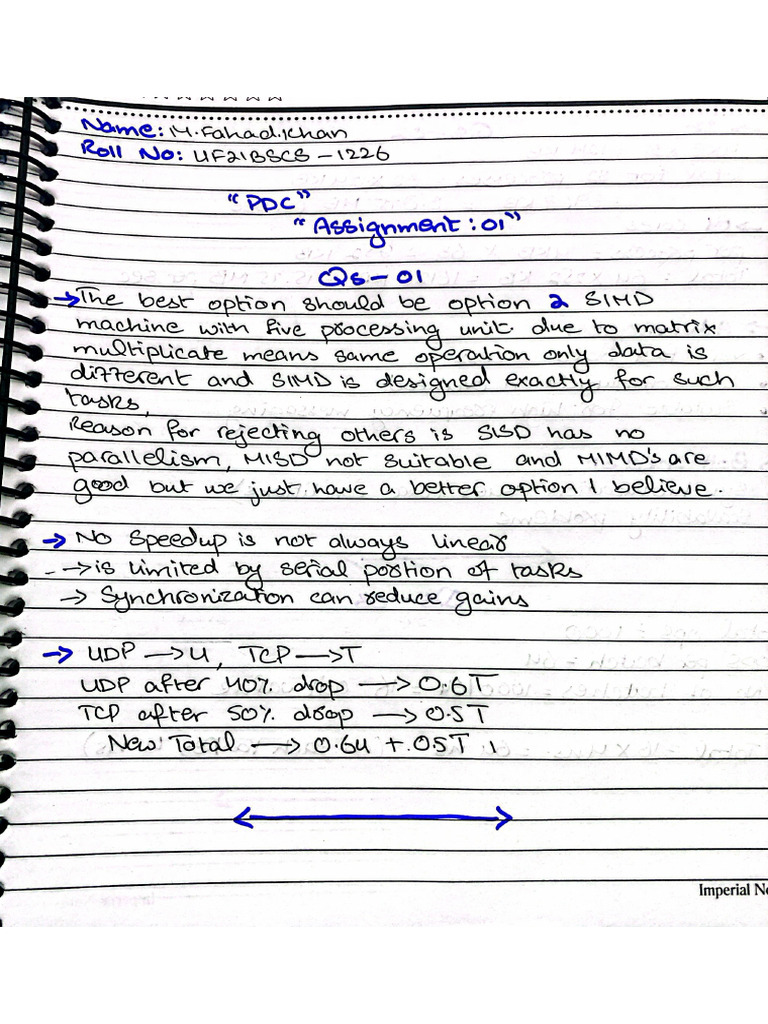 Name: M. Fahad.Khan
Roll No: UF21BSCS - 1226
"PDC"
"Assignment: 01"
Qs - 01
→ The best option should be option 2 SIMD
machine with five processing unit. due to matrix
multiplicate means same operation only data is
different and SIMD is designed exactly for such
tasks,
Reason for rejecting others is SISD has no
parallelism, MISD not suitable and MIMD's are
good but we just have a better option I believe.
→ No Speedup is not always linear
-→ is limited by serial portion of tasks
→ Synchronization can reduce gains
→ UDP → U, TCP → T
UDP after 40% drop → 0.6T
TCP after 50% drop → 0.5T
New Total → 0.6U + .05T
Imperial